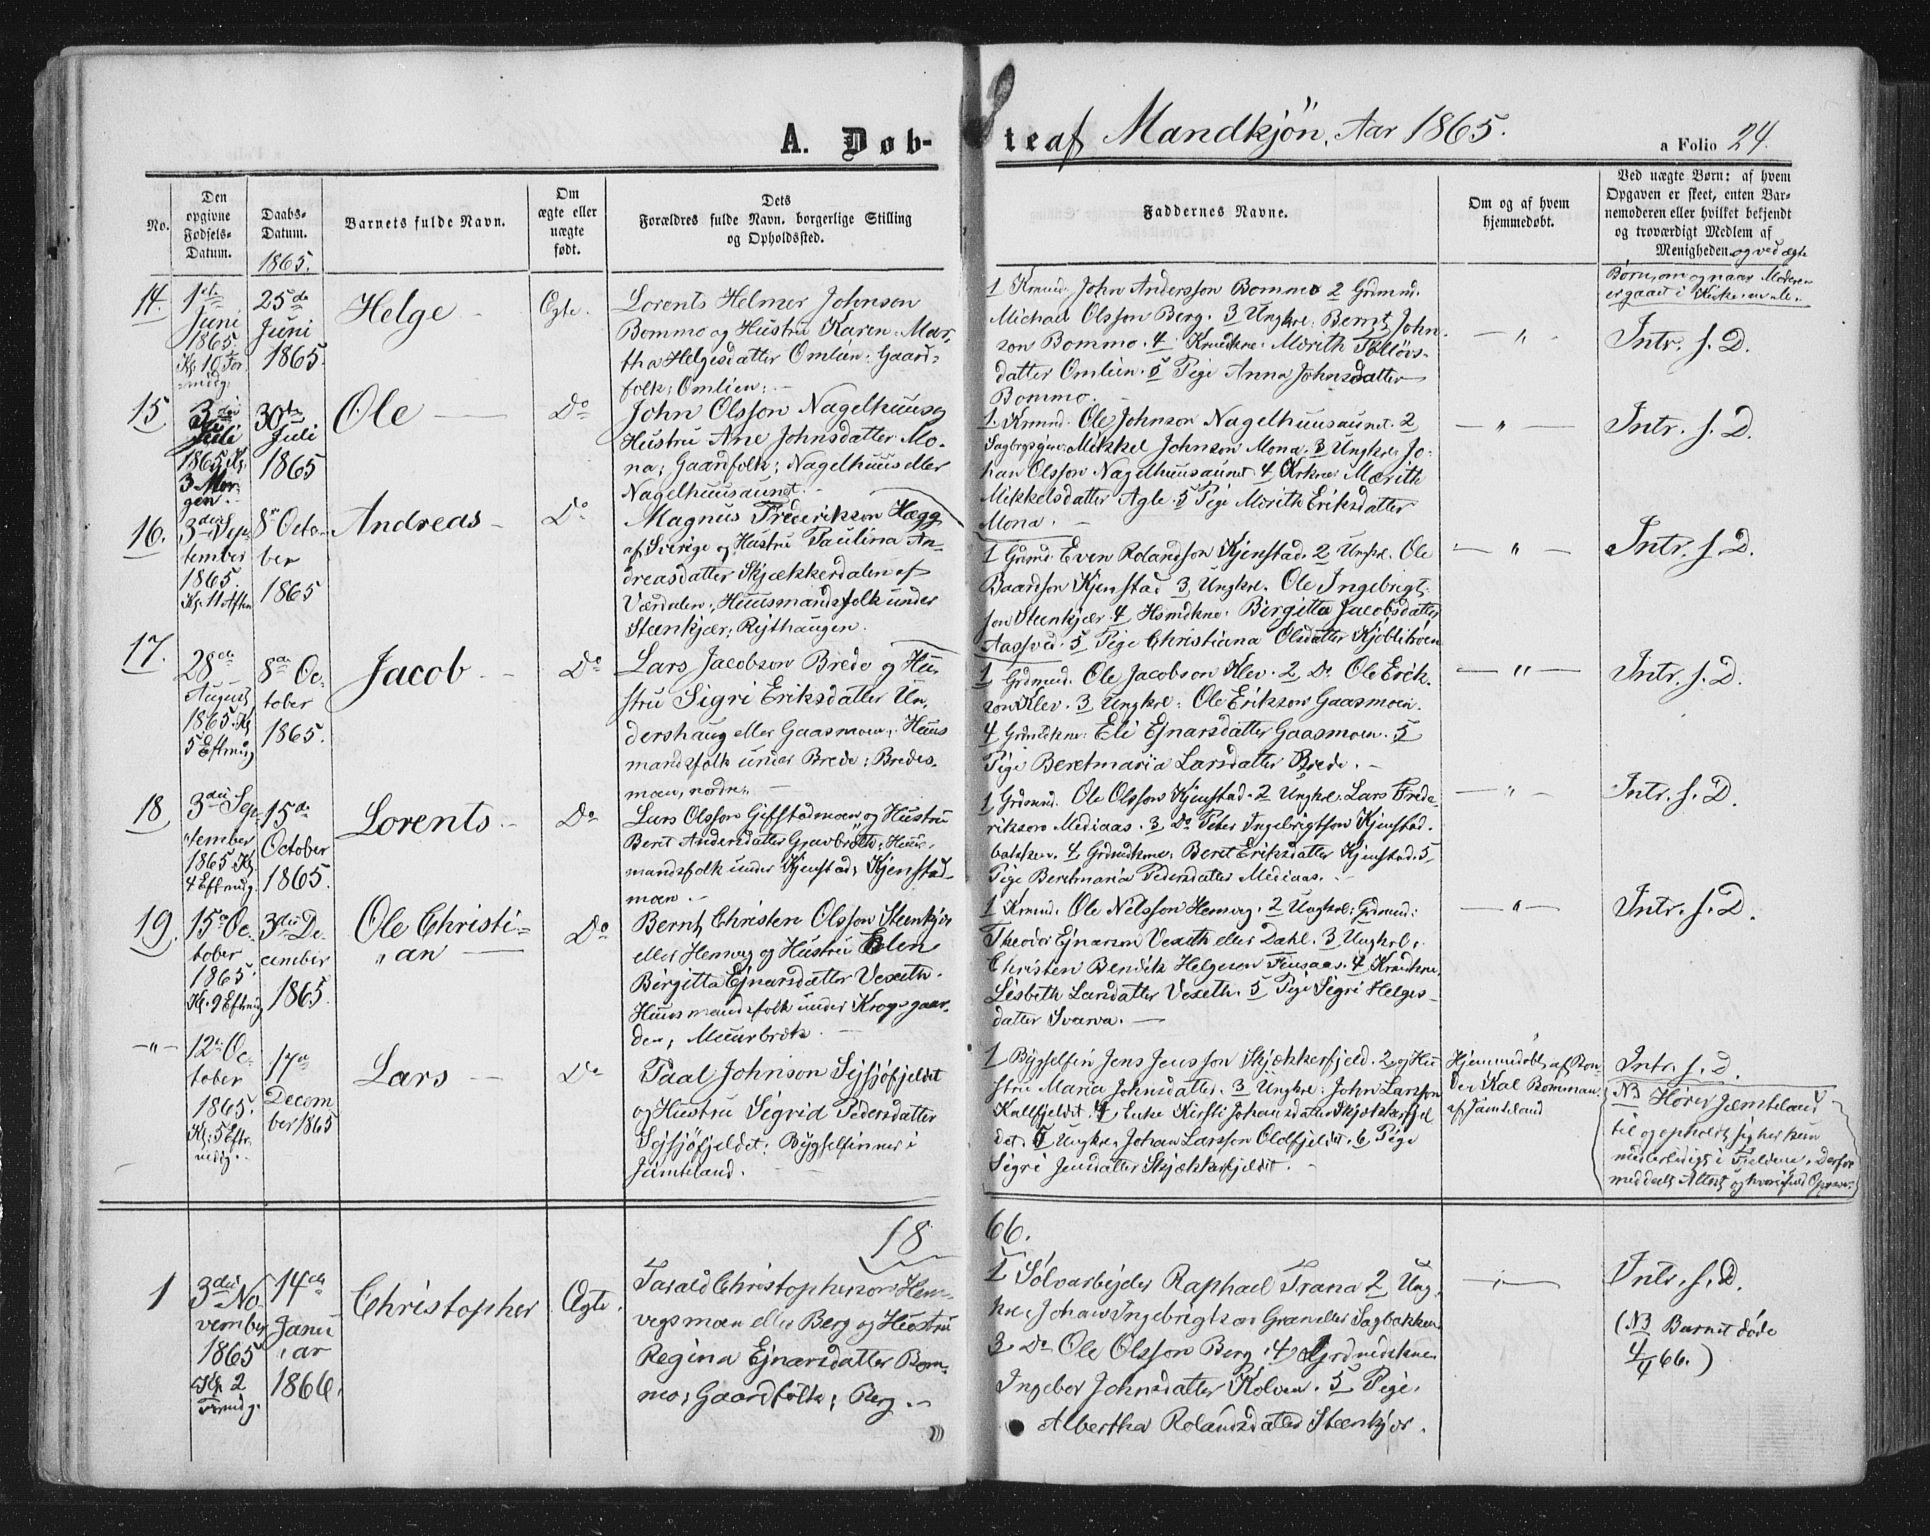 A. Døb-
te af Mandkjön, Aar 1865.
a Folio 24.
No.
Den
opgivne
Fødsels-
Datum.
Daabs-
Datum.
1865.
Barnets fulde Navn.
Om
ægte eller
uægte
født.
Dets
Forældres fulde Navn, borgerlige Stilling
og Opholdssted.
Faddernes Navne.
Om og af hvem
hjemmedøbt.
Ved uægte Børn: af hvem
Opgaven er skeet, enten Bar-
nemoderen eller hvilket bekjendt
og troværdigt Medlem af
Menigheden. og ved ægte
Børn, om og naar Moderen
er gaaet i Kirke
14.
1ste
Juni
1865.
Kl: 10 For
middg.
25de
Juni
1865.
Helge
Egte.
Lorents Helmer Johnson
Bommo og Hustru Karen Mar-
tha Helgesdatter Omlien: Gaard-
folk: Omlien:
1 Krmnd. John Andersson Bommo 2 Grdmnd.
Michael Olsson Berg. 3 Ungkrl: Bernt John-
son Bommo. 4 Krmdkne: Marith Tolløvs-
datter Omlien. 5 Pige Anna Johnsdatter
Bommo.
— " —
Intr. s. D.
15.
3die
Juli
1865. Kl.
3 Mor-
gen.
30te
Juli
1865
Ole
Do
John Olsson Nagelhuus og
Hustru Ane Johnsdatter Mo-
na; Gaardfolk; Nagelhuus eller
Nagelhuusaunet.
1. Krmnd. Ole Johnson Nagelhuusaunet. 2
Mikkel Johnson Mona. 3 Ungkrl: Jo-
han Olsson Nagelhuusaunet 4 Marith
Mikkelsdatter Agle. 5 Pige Marith Eriksdatter
Mona.
— " —
Intr. s. D.
16.
3die Sep-
tember
1865.
Kl. 11 Aften
8de Octo-
ber
1865
Andreas
Do
Magnus Frederikson Hægg
af Sverige og Hustru Paulina An-
dreasdatter Skjækkerdalen af
Værdalen; Huusmandsfolk under
Steenkjær; Rythaugen.
1 Grdmd Even Rolandson Kjenstad. 2 Ungkrl. Ole
Baardson Kjenstad 3 Ungkrl. Ole Ingebrigt-
son Steenkjær 4 Hsmdkne: Birgitta Jacobsdatter
Aasved. 5 Pige Christiana Olsdatter
— " —
Intr. s. D.
17.
28de
August
1865. Kl.
5 Eftmdg
8de Oc-
tober
1865.
Jacob
Do
Lars Jacobson Brede og Hu-
stru Sigri Eriksdatter Un-
dershaug eller Gaasmoen; Huus
mandsfolk under Brede; Bredes-
moen, nordre.
1 Grdmnd. Ole Jacobson Klev. 2 Do Ole Erik-
son Klev. 3 Ungkrl: Ole Erikson Gaasmoen.
4 Grdmdkne: Eli Ejnarsdatter Gaasmoen. 5
Pige Beretmaria Larsdatter Brede.
— " —
Intr. s. D.
18
3die Sep-
tember
1865 Kl.
4 Eftmdg.
15de
October
1865.
Lorents
Do
Lars Olsson Gifstadmoen og Hustru
Berit Andersdatter Gravbröth; Huus-
mandsfolk under Kjenstad; Kjenstad-
moen.
1 Grdmnd. Ole Olsson Kjenstad. 2 Ungkrl. Lars Frede-
rikson Mediaas. 3 Do Peter Ingebrigtson Kjenstad-
bakken. 4 Grdmdkne: Beret Eriksdatter Kjenstad. 5
Pige Beretmaria Pedersdatter Mediaas.
— " —
Intr. s. D.
19.
15de Oc-
tober
1865.
Kl. 9 Eftmdg
3die De-
cember
1865.
Ole Christi-
an
Do
Bernt Christen Olsson Steenkjær
eller Hemveg og Hustru Elen
Birgitta Ejnarsdatter Vexeth.
Huusmandsfolk under Krogsgaar-
den; Muurbrøk.
1 Krmnd. Ole Nelsson Hemveg. 2 Ungkrl: Grdmnd:
Theodor Ejnarson Vexeth eller Dahl. 3 Ungkrl.
Christen Bendik Helgeson Finsaas. 4 Krmdkne.
Lisbeth Larsdatter Vexeth. 5 Pige Sigri Helges-
datter Svarva.
— " —
Intr. s. D.
— " —
12te Oc-
tober
1865.
Kl: 5 Eftr.
middg.
17de
Decem
ber 1865
Lars
Do
Paal Johnson Sejsjöfjeldet
og Hustru Sigrid Pedersdatter
Sejsjöfjeldet: Bygselfinner i
Jämteland.
1 Bygselfin Jens Jensson Skjækkerfjeld. 2 og Hu
stru Maria Johnsdatter. 3 Ungkrl: John Larsson
Kallfjeldet. 4 Enke Kirsti Johansdatter Skjækkerfjel
det. 5 Ungkrl. Johan Larsson Oldfjeldet. 6 Pige
Sigri Jensdatter Skjækkerfjeldet.
Hjemmedøbt af Bon-
den Kal Bomman
af Jämteland
Intr. s. D.
NB Hører Jæmteland
til og opholdt sig her kun
midlertidigt i Fjeldene. Derfor
meddeelt Attest
18
66.
1
3die No-
vember
1865
Kl. 2
Frmdg.
14de
Janu
ar
1866.
Christopher
Ægte.
Tarald Christopherson Hem-
vegsmoen eller Berg og Hustru
Regina Ejnarsdatter Bom-
mo; Gaardfolk; Berg.
1 Sölvarbejder Raphael Trana 2 Ung-
krl. Johan Ingebrigtson Granelier Sagbakken.
3 Do Ole Olsson Berg. 4 Grdmdskne
Ingebor Johnsdatter Kolven. 5 Pige.
Albertha Rolandsdatter Steenkjær.
Intr. s. D.
(NB Barnet döde
4/4 66.)